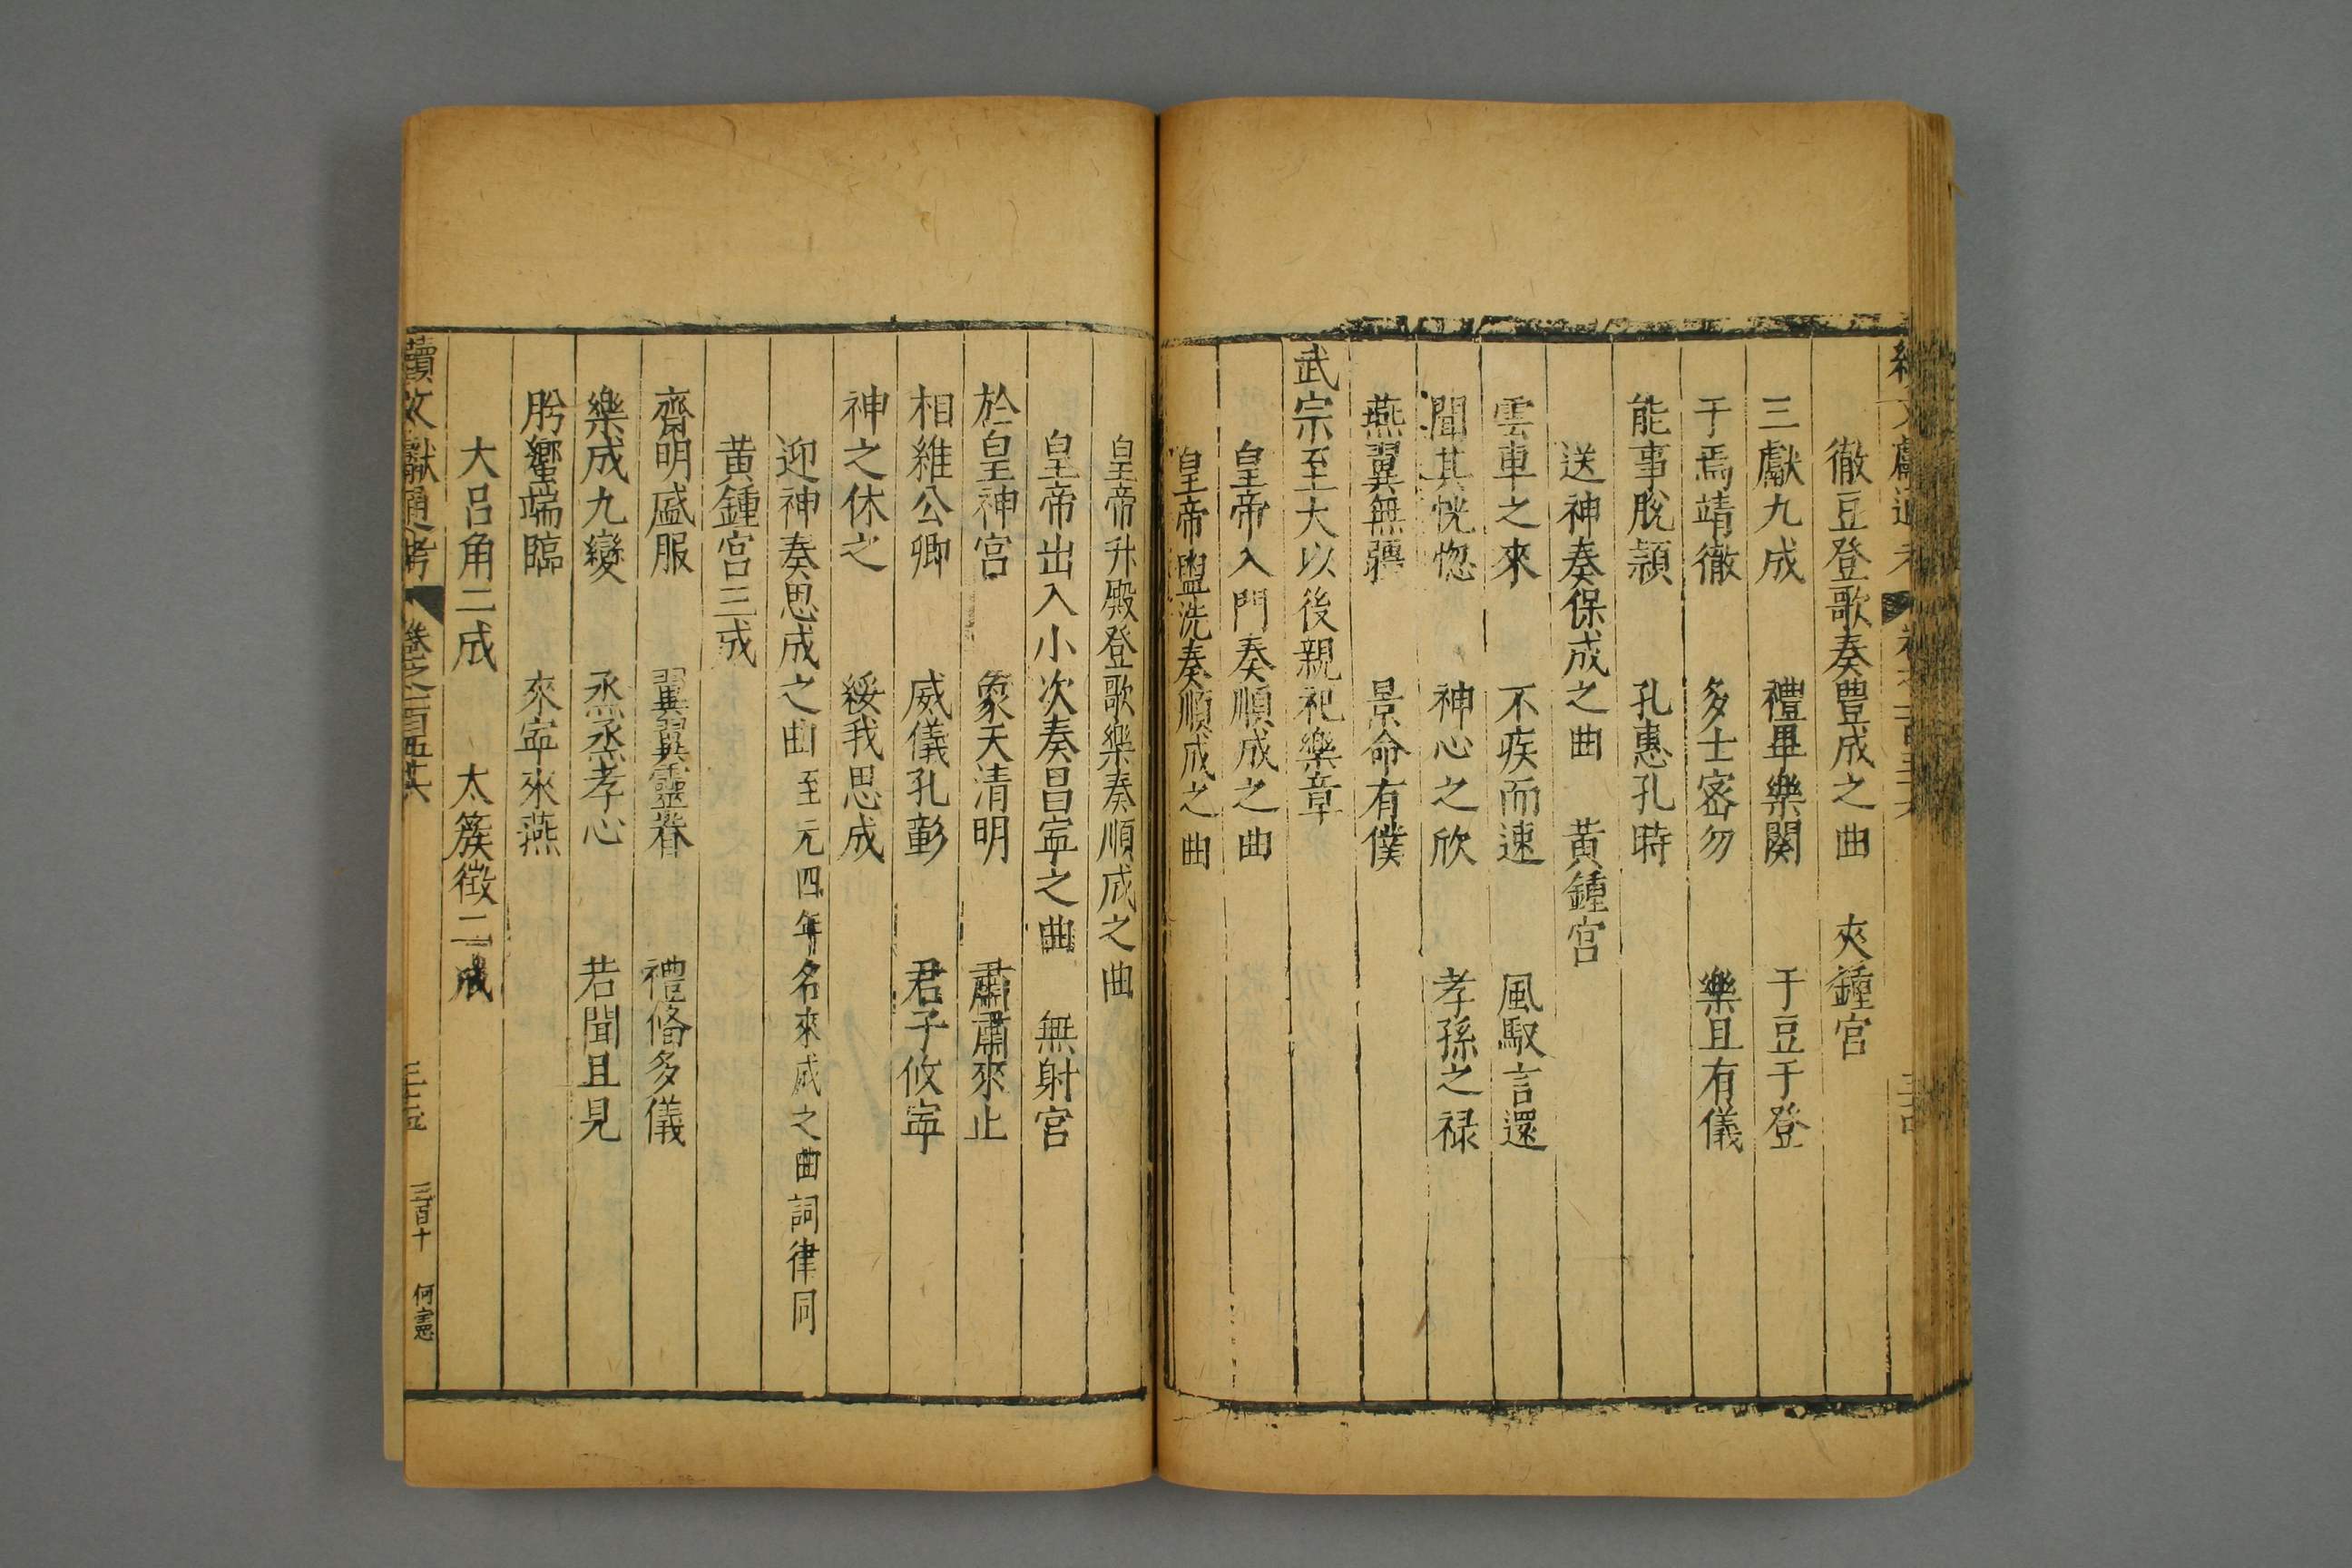 徹豆登歌奏豊成之曲　夾鍾宮
三獻九成　禮畢樂闋　于豆于登
于焉靖徹　多士宻勿　樂且有儀
能事脫頴　孔惠孔時
送神奏保成之曲　黃鍾宮
雲車之來　不疾而速　風馭言還
聞其恍惚　神心之欣　孝孫之禄
燕翼無疆　景命有僕
武宗至大以後親祀樂章
皇帝入門奏順成之曲
皇帝盥洗奏順成之曲
皇帝升殿登歌樂奏順成之曲
皇帝出入小次奏昌寜之曲　無射宮
於皇神宮　象天清明　肅肅來止
相維公卿　威儀孔彰　君子攸寜
神之休之　綏我思成
迎神奏思成之曲至元四年名來成之曲詞律同
黃鍾宮三成
齋明盛服　翼翼靈眷　禮俻多儀
樂成九變　烝烝孝心　若聞且見
肹蠁端臨　來寜來燕
大呂角二成　太簇徵二成
續文獻通考　卷之一百五十六　三十五　三百十　何憲